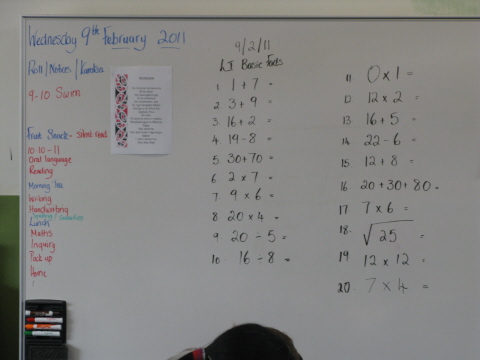 Wednesday 9th February 2011
Roll / Notices / Karakia
9-10 Swim
Fruit Snack - silent read
10.10 - 11
Oral language
Reading
Morning Tea
Writing
Handwriting
Spelling /
Lunch
Maths
Inquiry
Pack up
Home
9/2/11
LI Basic Facts
1 1 + 7 =
2 3 + 9 =
3 16 + 2 =
4 19 - 8 =
5 30 + 70 =
6 2 x 7 =
7 9 x 6 =
8 20 x 4 =
9. 20 ÷ 5 =
10. 16 ÷ 8 =
11 0 x 1 =
12 12 x 2 =
13 16 + 5 =
14 22 - 6 =
15. 12 + 8 =
16 20 + 30 + 80 =
17 7 x 6 =
18. √25 =
19 12 x 12 =
20 7 x 4 =